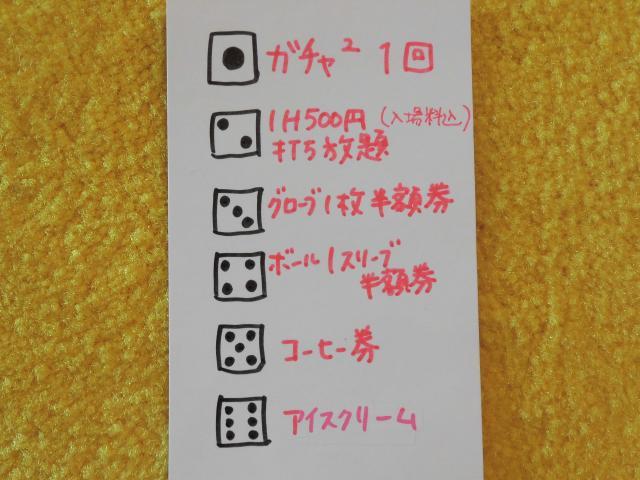 ガチャ² 1回
1H500円(入場料込)
打ち放題
グローブ1枚半額券
ボール1スリーブ
半額券
コーヒー券
アイスクリーム